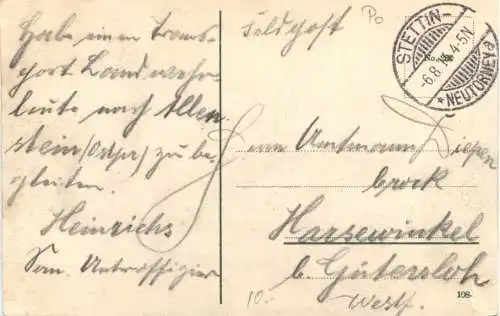 Habe einen Trans-
port Landwehr-
leute nach Allen
stein (Ostpr) zu be-
gleiten.
Heinrichs
San. Unteroffizier
Feldpost
Po
STETTIN-
-6.8.14.4-5N
* NEUTORNEY a
Herrn Amtmann Diepen
brock
Harsewinkel
b. Gütersloh
Westf.
10.-
108-